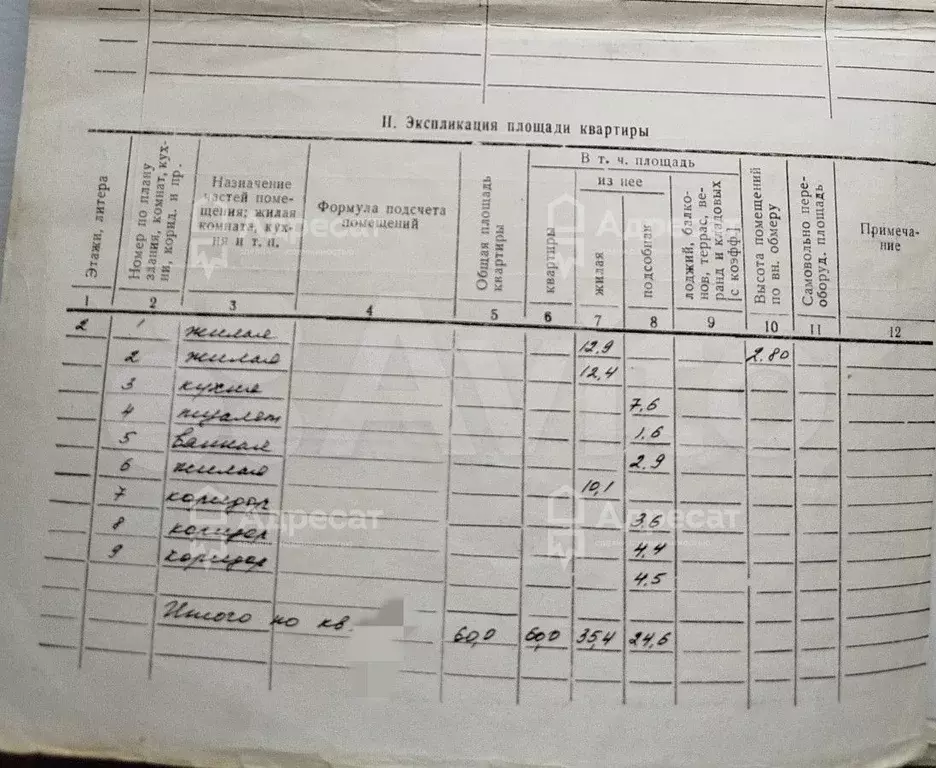 II. Экспликация площади квартиры
Этажи, литера
Номер по плану
здания, комнат, кух-
ни, корид. и пр.
Назначение
частей поме-
щения: жилая
комната, кух-
ня и т. п.
Формула подсчета
помещений
Общая площадь
квартиры
В т. ч. площадь
квартиры
из нее
жилая
подсобная
лоджий, балко-
нов, террас, ве-
ранд и кладовых
[с коэфф.]
Высота помещений
по вн. обмеру
Самовольно пере-
оборуд. площадь
Примеча-
ние
1 2 3 4 5 6 7 8 9 10 11 12
2 1 жилая 12,9 2.80
2 жилая 12,4
3 кухня 7,6
4 туалет 1.6
5 ванная 2.9
6 жилая 10,1
7 коридор 3.6
8 коридор 4,4
9 коридор 4.5
Итого по кв. 60,0 60,0 35,4 24,6
Адресат
Адресат
Адресат
Адресат
Avito